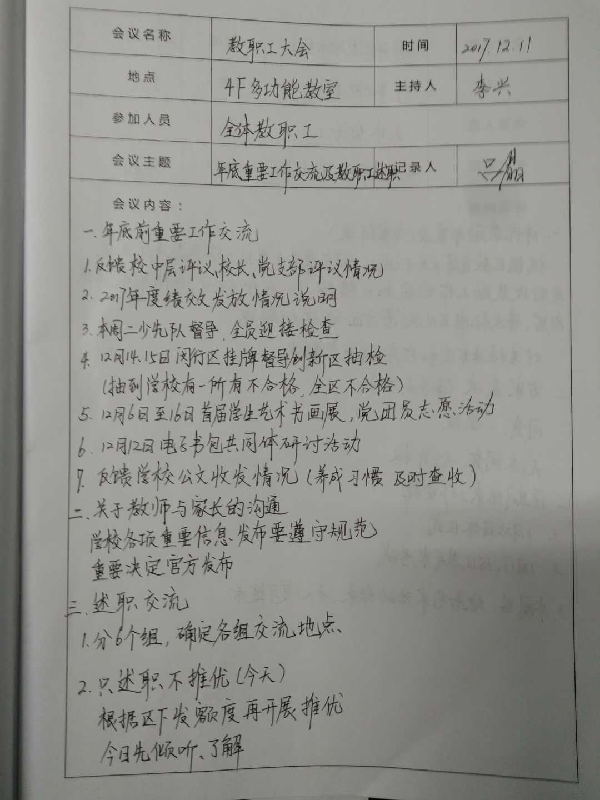 会议名称 教职工大会 时间 2017.12.11
地点 4F多功能教室 主持人 李兴
参加人员 全体教职工
会议主题 年底重要工作交流及教职工述职 记录人
会议内容：
一、年底前重要工作交流
1.反馈校中层评议、校长、党支部评议情况
2.2017年度绩效发放情况说明
3.本周二少先队督导，全员迎接检查
4.12月14.15日闵行区挂牌督导创新区抽检
(抽到学校有一所有不合格，全区不合格)
5.12月6日至16日首届学生艺术书画展，党团员志愿活动
6.12月12日电子书包共同体研讨活动
7.反馈学校公文收发情况(养成习惯 及时查收)
二.关于教师与家长的沟通
学校各项重要信息发布要遵守规范
重要决定官方发布
三.述职交流
1.分6个组，确定各组交流地点、
2.只述职不推优(今天)
根据区下发额度再开展推优
今日先倾听、了解